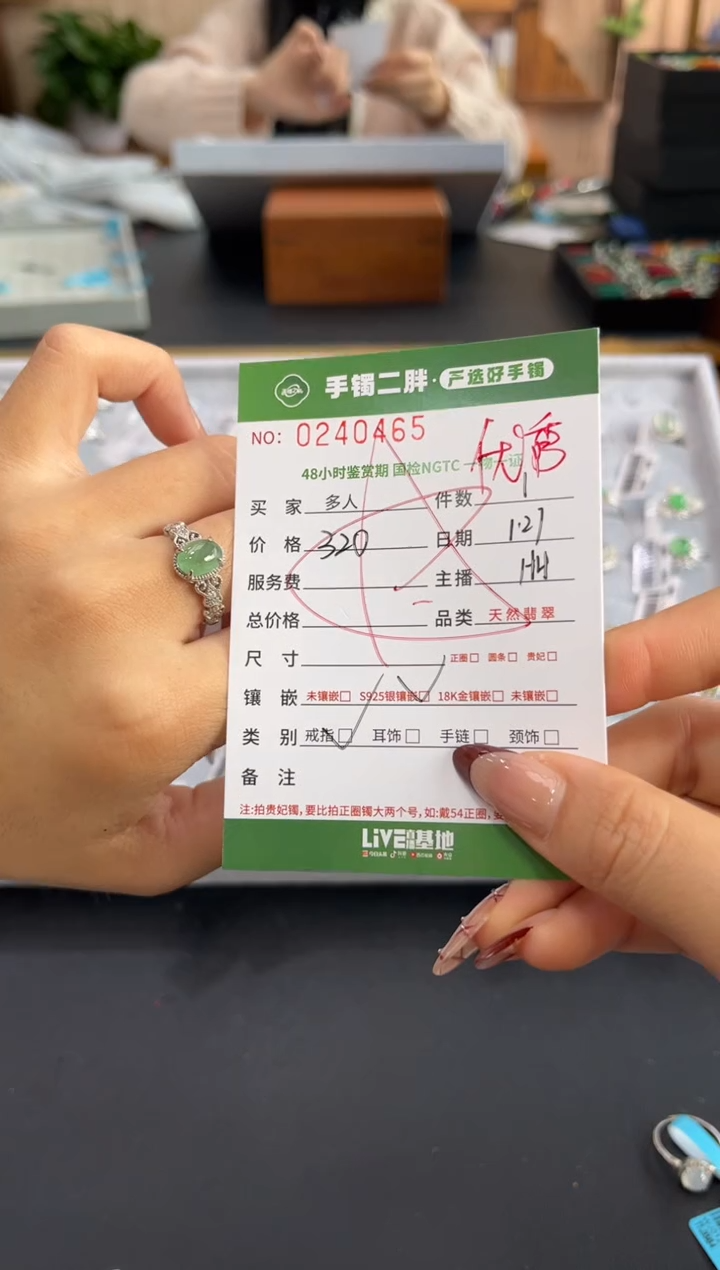 手镯二胖·严选好手镯
NO: 0240465
48小时鉴赏期 国检NGTC 一物一证
买 家 多人 件数 1
价 格 320 日期 1.27
服务费 主播
总价格 品类 天然翡翠
尺 寸 正圈□ 圆条□ 贵妃□
镶 嵌 未镶嵌□ S925银镶嵌□ 18K金镶嵌□ 未镶嵌□
类 别 戒指□ 耳饰□ 手链□ 颈饰□
备 注
注:拍贵妃镯,要比拍正圈镯大两个号,如:戴54正圈,
LiVE 基地